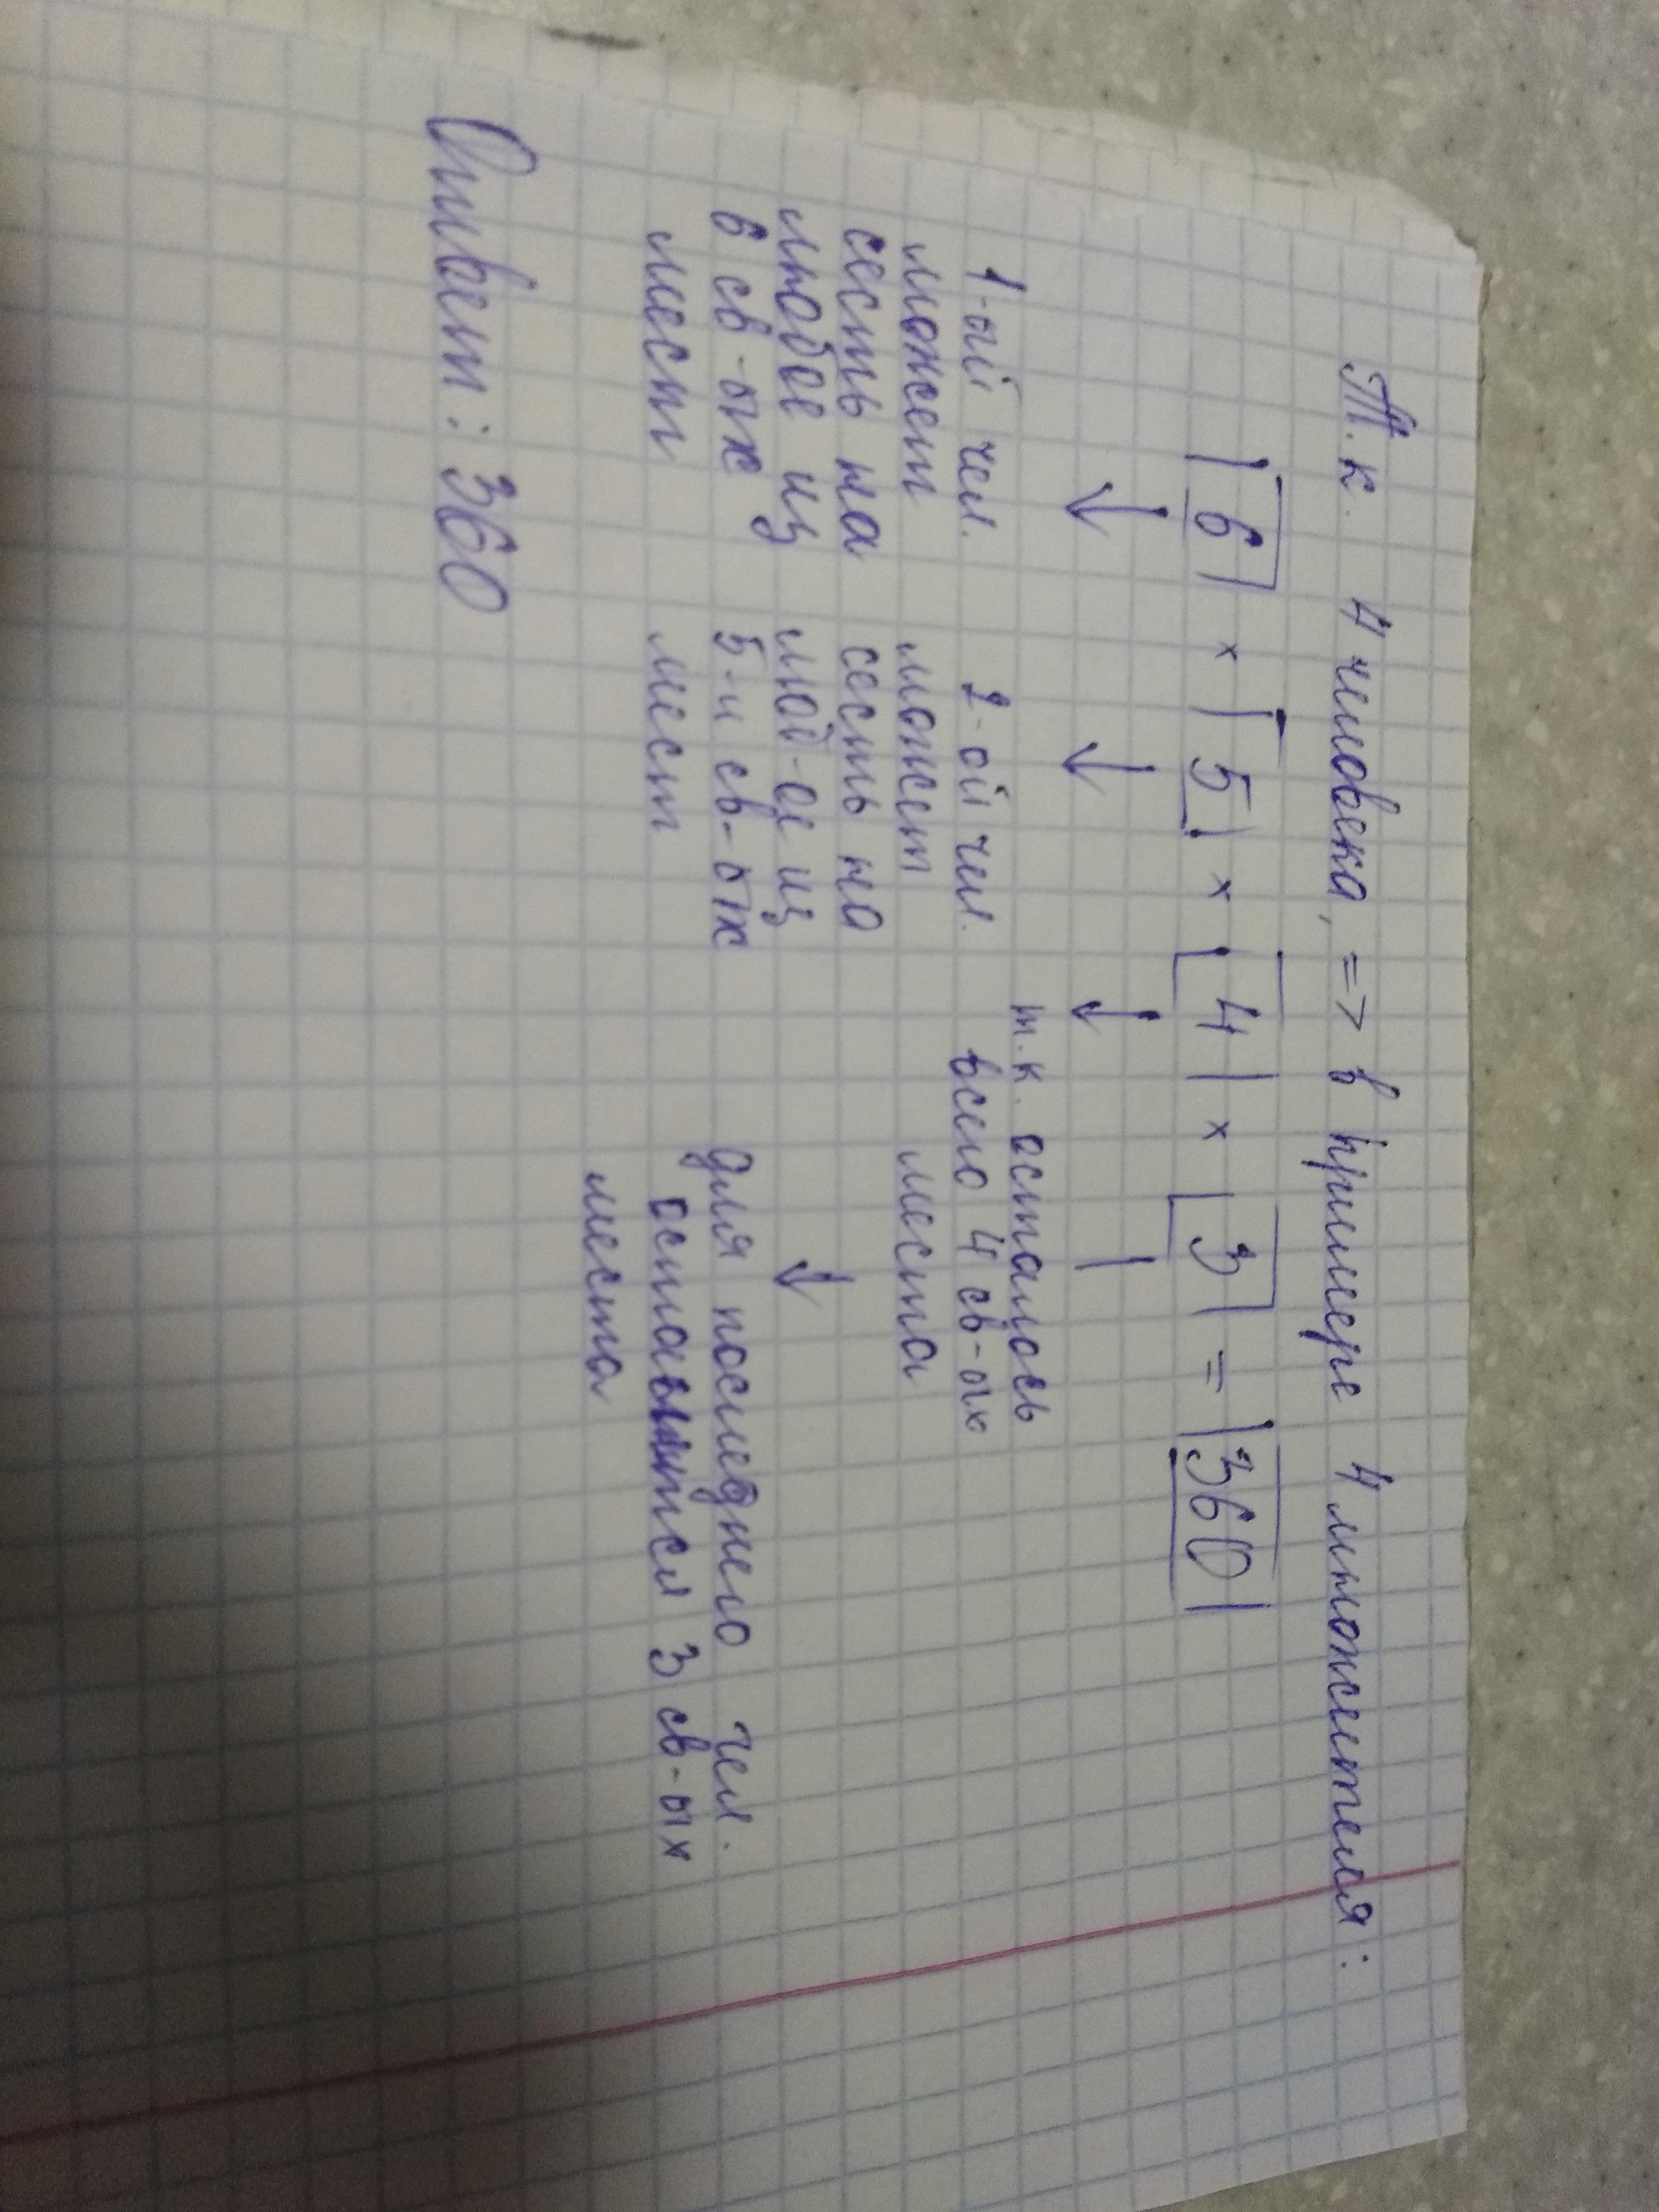 Т.к. 4 человека, => в примере 4 множителя:
6 × 5 × 4 × 3 = 360
↓ ↓ ↓ ↓
1-ый чел.
может
сесть на
любое из
6 св-ых
мест
2-ой чел.
может
сесть на
люб-ое из
5-и св-ых
мест
т.к. осталось
всего 4 св-ых
места
для последнего чел.
оставится 3 св-ых
места
Ответ: 360